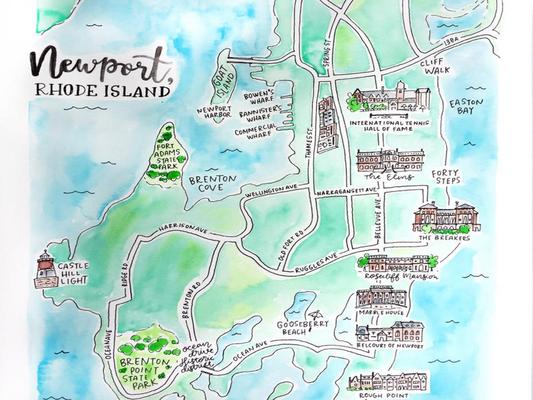 Newport,
RHODE ISLAND
GOAT
ISLAND
NEWPORT
HARBOR
BOWEN'S
WHARF
BANNISTER'S
WHARF
COMMERCIAL
WHARF
SPRING ST
THAMES ST
138A
CLIFF
WALK
EASTON
BAY
INTERNATIONAL TENNIS
HALL OF FAME
The Elms
FORTY
STEPS
FORT
ADAMS
STATE
PARK
BRENTON
COVE
WELLINGTON AVE
NARRAGANSETT AVE
BELLEVUE AVE
THE BREAKERS
HARRISON AVE
OLD FORT RD
RUGGLES AVE
Rosecliff Mansion
CASTLE
HILL
LIGHT
RIDGE RD
BRENTON RD
MARBLE HOUSE
GOOSEBERRY
BEACH
BELCOURT OF NEWPORT
OCEAN AVE
BRENTON
POINT
STATE
PARK
ocean
drive
historic
district
OCEAN AVE
ROUGH POINT